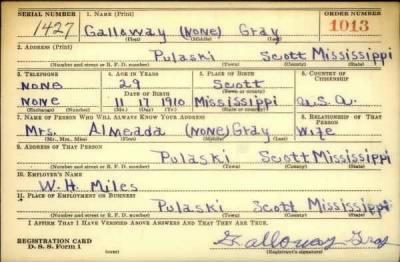 SERIAL NUMBER 1. NAME (Print) ORDER NUMBER
1427 Galloway (NONE) Gray 1013
(First) (Middle) (Last)
2. ADDRESS (Print)
Pulaski Scott Mississippi
(Number and street or R. F. D. number) (Town) (County) (State)
3. TELEPHONE 4. AGE IN YEARS 5. PLACE OF BIRTH 6. COUNTRY OF CITIZENSHIP
NONE 29 Scott
DATE OF BIRTH (Town or county)
NONE 11 17 1910 Mississippi U.S.A.
(Exchange) (Number) (Mo.) (Day) (Yr.) (State or country)
7. NAME OF PERSON WHO WILL ALWAYS KNOW YOUR ADDRESS 8. RELATIONSHIP OF THAT PERSON
Mrs. Almeada (NONE) Gray Wife
(Mr., Mrs., Miss) (First) (Middle) (Last)
9. ADDRESS OF THAT PERSON
Pulaski Scott Mississippi
(Number and street or R. F. D. number) (Town) (County) (State)
10. EMPLOYER'S NAME
W. H. Miles
11. PLACE OF EMPLOYMENT OR BUSINESS
Pulaski Scott Mississippi
(Number and street or R. F. D. number) (Town) (County) (State)
I AFFIRM THAT I HAVE VERIFIED ABOVE ANSWERS AND THAT THEY ARE TRUE.
REGISTRATION CARD
D. S. S. Form 1 Galloway Gray
(Registrant's signature)